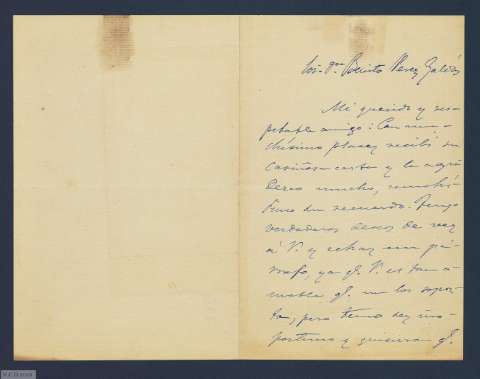 Sr. Dn. Benito Perez Galdós
Mi querido y res
petable amigo: Con mu
chísimo placer recibí su
cariñosa carta y le agra
dezco mucho, muchí
simo su recuerdo. Tengo
verdaderos deseos de ver
á V. y echar un pá
rrafo, ya qe. V. es tan a
mable qe. me los sopor
ta; pero temo ser ino
portuno y quisiera qe.